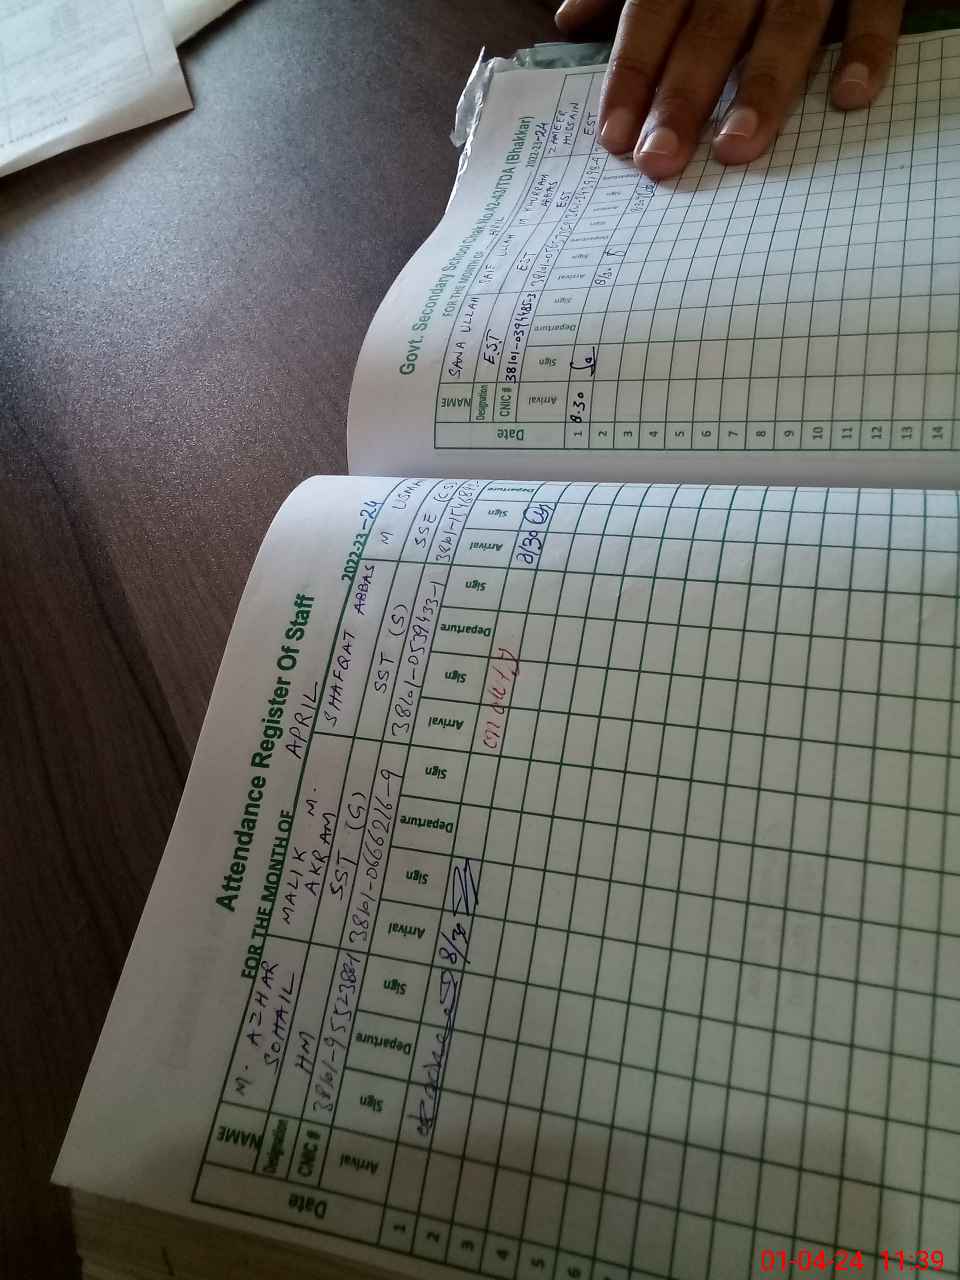 Attendance Register Of Staff
FOR THE MONTH OF APRIL 2022-23-24
NAME M. AZHAR SOHAIL MALIK M. AKRAM SHAFQAT ABBAS M USMA
Designation HM SST (G) SST (S) SSE (CS)
CNIC # 38101-0666216-9 38101-0539433-1
Date Arrival Sign Departure Sign Arrival Sign Departure Sign Arrival Sign Departure Sign Arrival Sign Departure
1 8/30 on duty 8/30
2
3
4
5
6
Govt. Secondary School Chak No.42-43/TDA (Bhakkar)
FOR THE MONTH OF 2022-23-24
NAME SANA ULLAH SAIF ULLAH M KHURRAM ABBAS ZAMEER HUSSAIN
Designation EST EST EST EST
CNIC # 38101-0394485-3
Date Arrival Sign Departure Sign Arrival Sign Departure Sign Arrival Sign Departure
1 8.30 8/30 8:30
2
3
4
5
6
7
8
9
10
11
12
13
14
01-04-24 11:39